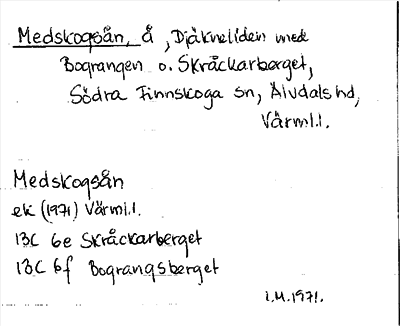 Medskogsån, å, Djäkneliden med
Bograngen o. Skråckarberget,
Södra Finnskoga sn, Älvdals hd,
Värml.l.
Medskogsån
ek (1971) Värml.l.
13C 6e Skråckarberget
13C 6f Bograngsberget
I.M.1971.